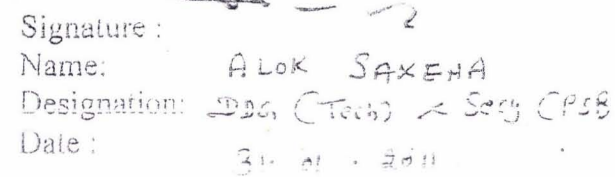 Signature :
Name: ALOK SAXENA
Designation: DDG (Tech) & Secy (PSB
Date : 31. 01. 2011